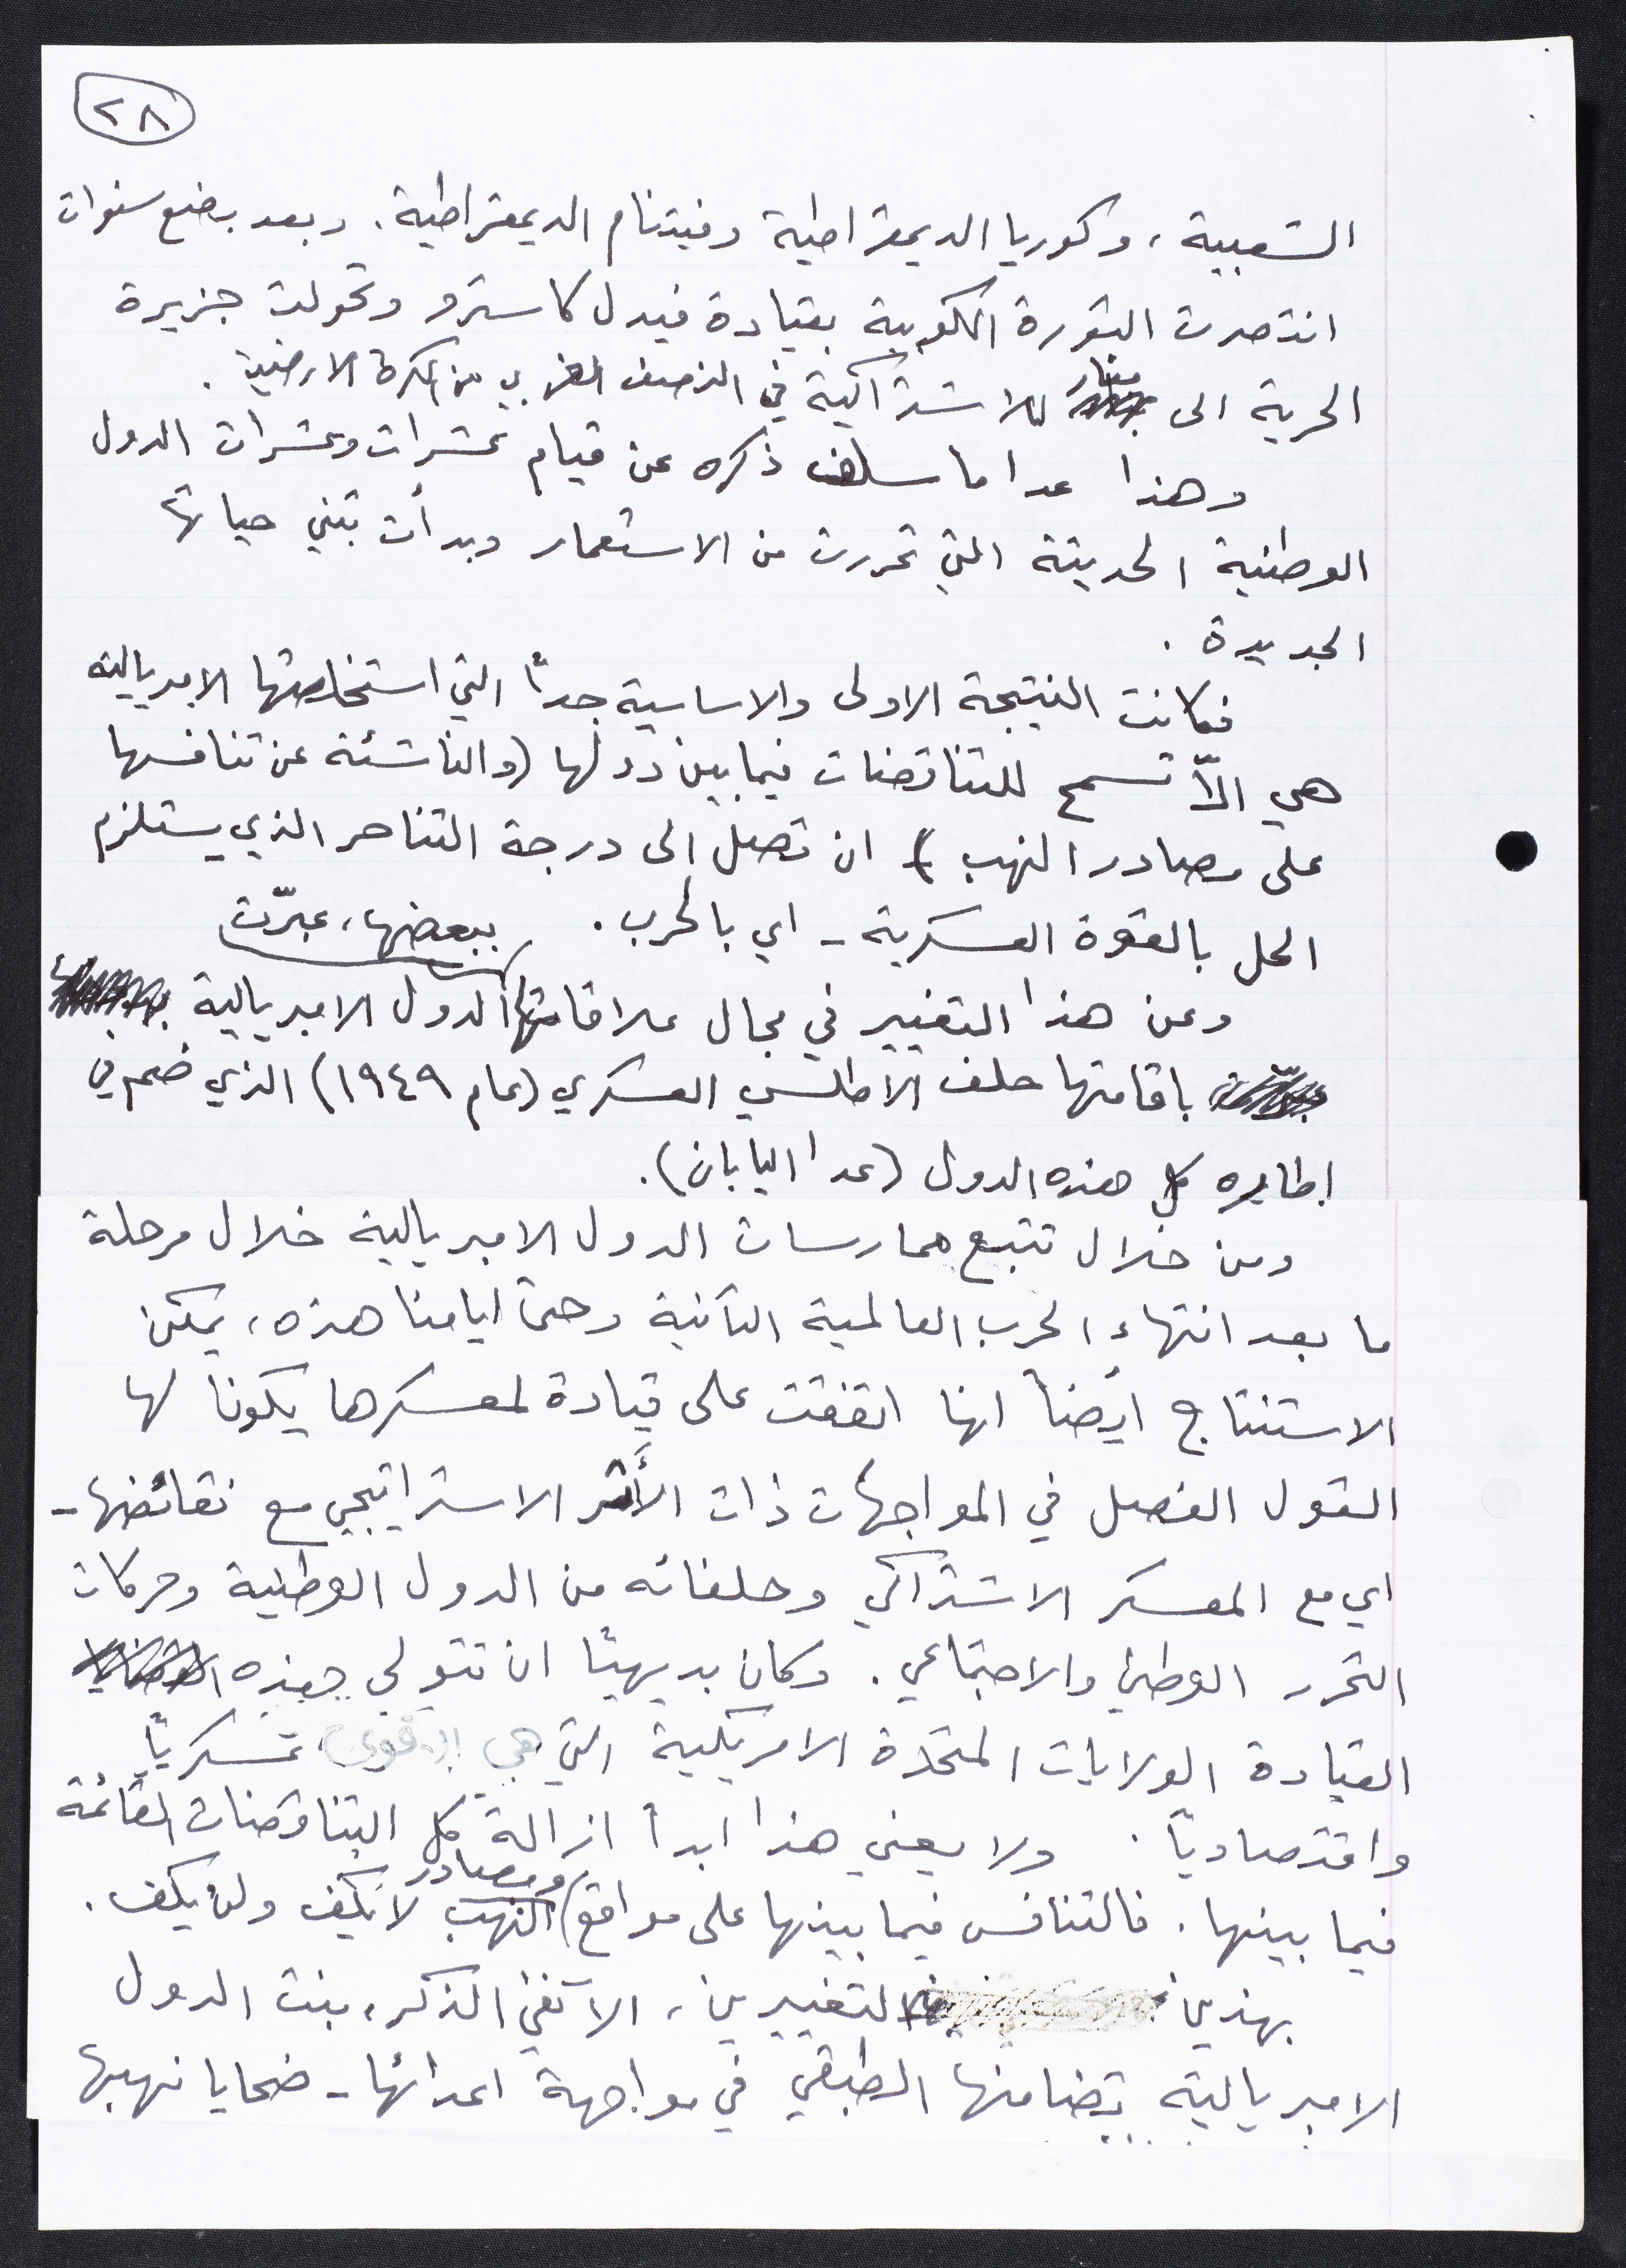 ٢٨
الشعبية، وكوريا الديمقراطية وفيتنام الديمقراطية. وبعد بضع سنوات
انتصرت الثورة الكوبية بقيادة فيدل كاسترو وتحولت جزيرة
الحرية الى منار للاشتراكية في النصف الغربي من الكرة الارضية.
وهذا عدا ما سلف ذكره عن قيام عشرات وعشرات الدول
الوطنية الحديثة التي تحررت من الاستعمار وبدأت تبني حياتها
الجديدة.
فكانت النتيجة الاولى والاساسية جداً التي استخلصتها الامبريالية
هي الاّ تسمح للتناقضات فيما بين دولها (والناشئة عن تنافسها
على مصادر النهب) ان تصل الى درجة التناحر الذي يستلزم
الحل بالقوة العسكرية - اي بالحرب.
وعن هذا التغيير في مجال علاقاتها ببعضها، عبّرت الدول الامبريالية
باقامتها حلف الاطلسي العسكري (عام ١٩٤٩) الذي ضم في
اطاره كل هذه الدول (عدا اليابان).
ومن خلال تتبع ممارسات الدول الامبريالية خلال مرحلة
ما بعد انتهاء الحرب العالمية الثانية وحتى ايامنا هذه، يمكن
الاستنتاج ايضاً انها اتفقت على قيادة لمعسكرها يكون لها
القول الفصل في المواجهات ذات الأثر الاستراتيجي مع نقائضها -
اي مع المعسكر الاشتراكي وحلفائه من الدول الوطنية وحركات
التحرر الوطني والاجتماعي. وكان بديهياً ان تتولى هذه
القيادة الولايات المتحدة الامريكية التي هي الاقوى عسكرياً
واقتصادياً. ولا يعني هذا ابداً ازالة كل التناقضات القائمة
فيما بينها. فالتنافس فيما بينها على مواقع ومصادر النهب لا يكف ولن يكف.
بهذين التغييرين، الآنفي الذكر، بنت الدول
الامبريالية تضامنها الطبقي في مواجهة اعدائها - ضحايا نهبها